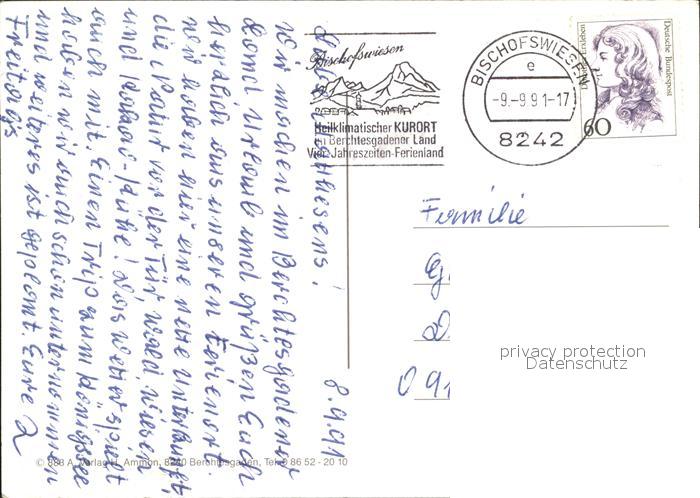 8.9.91
Wir machen im Berchtesgadener
Land Urlaub und grüßen Euch
herzlich aus unseren Ferienort
wir haben hier eine nette Unterkunft,
die Natur vor der Tür, Wald, Wiesen
und Kühe! Das Wetter spielt
auch mit. Einen Trip zum Königssee
haben wir auch schon unternommen
und weiteres ist geplant. Eure 2
Freitags
Bischofswiesen
Heilklimatischer KURORT
im Berchtesgadener Land
Vier-Jahreszeiten-Ferienland
BISCHOFSWIESEN
e
-9.-9.91-17
8242
Deutsche Bundespost
60
Familie
G
D
091
privacy protection
Datenschutz
© 888 A Verlag H. Ammon, 8240 Berchtesgaden, Tel. 0 86 52 - 20 10